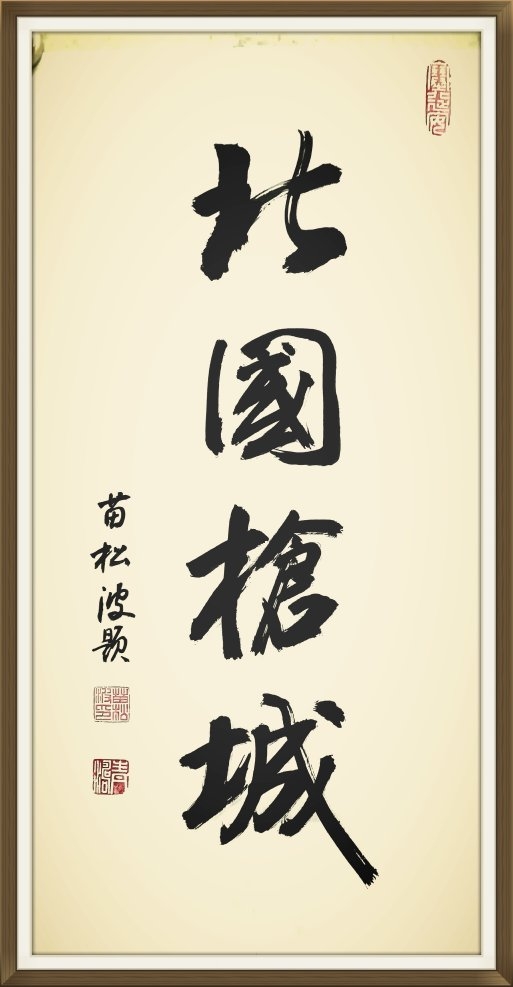 北國槍城
苗松波题